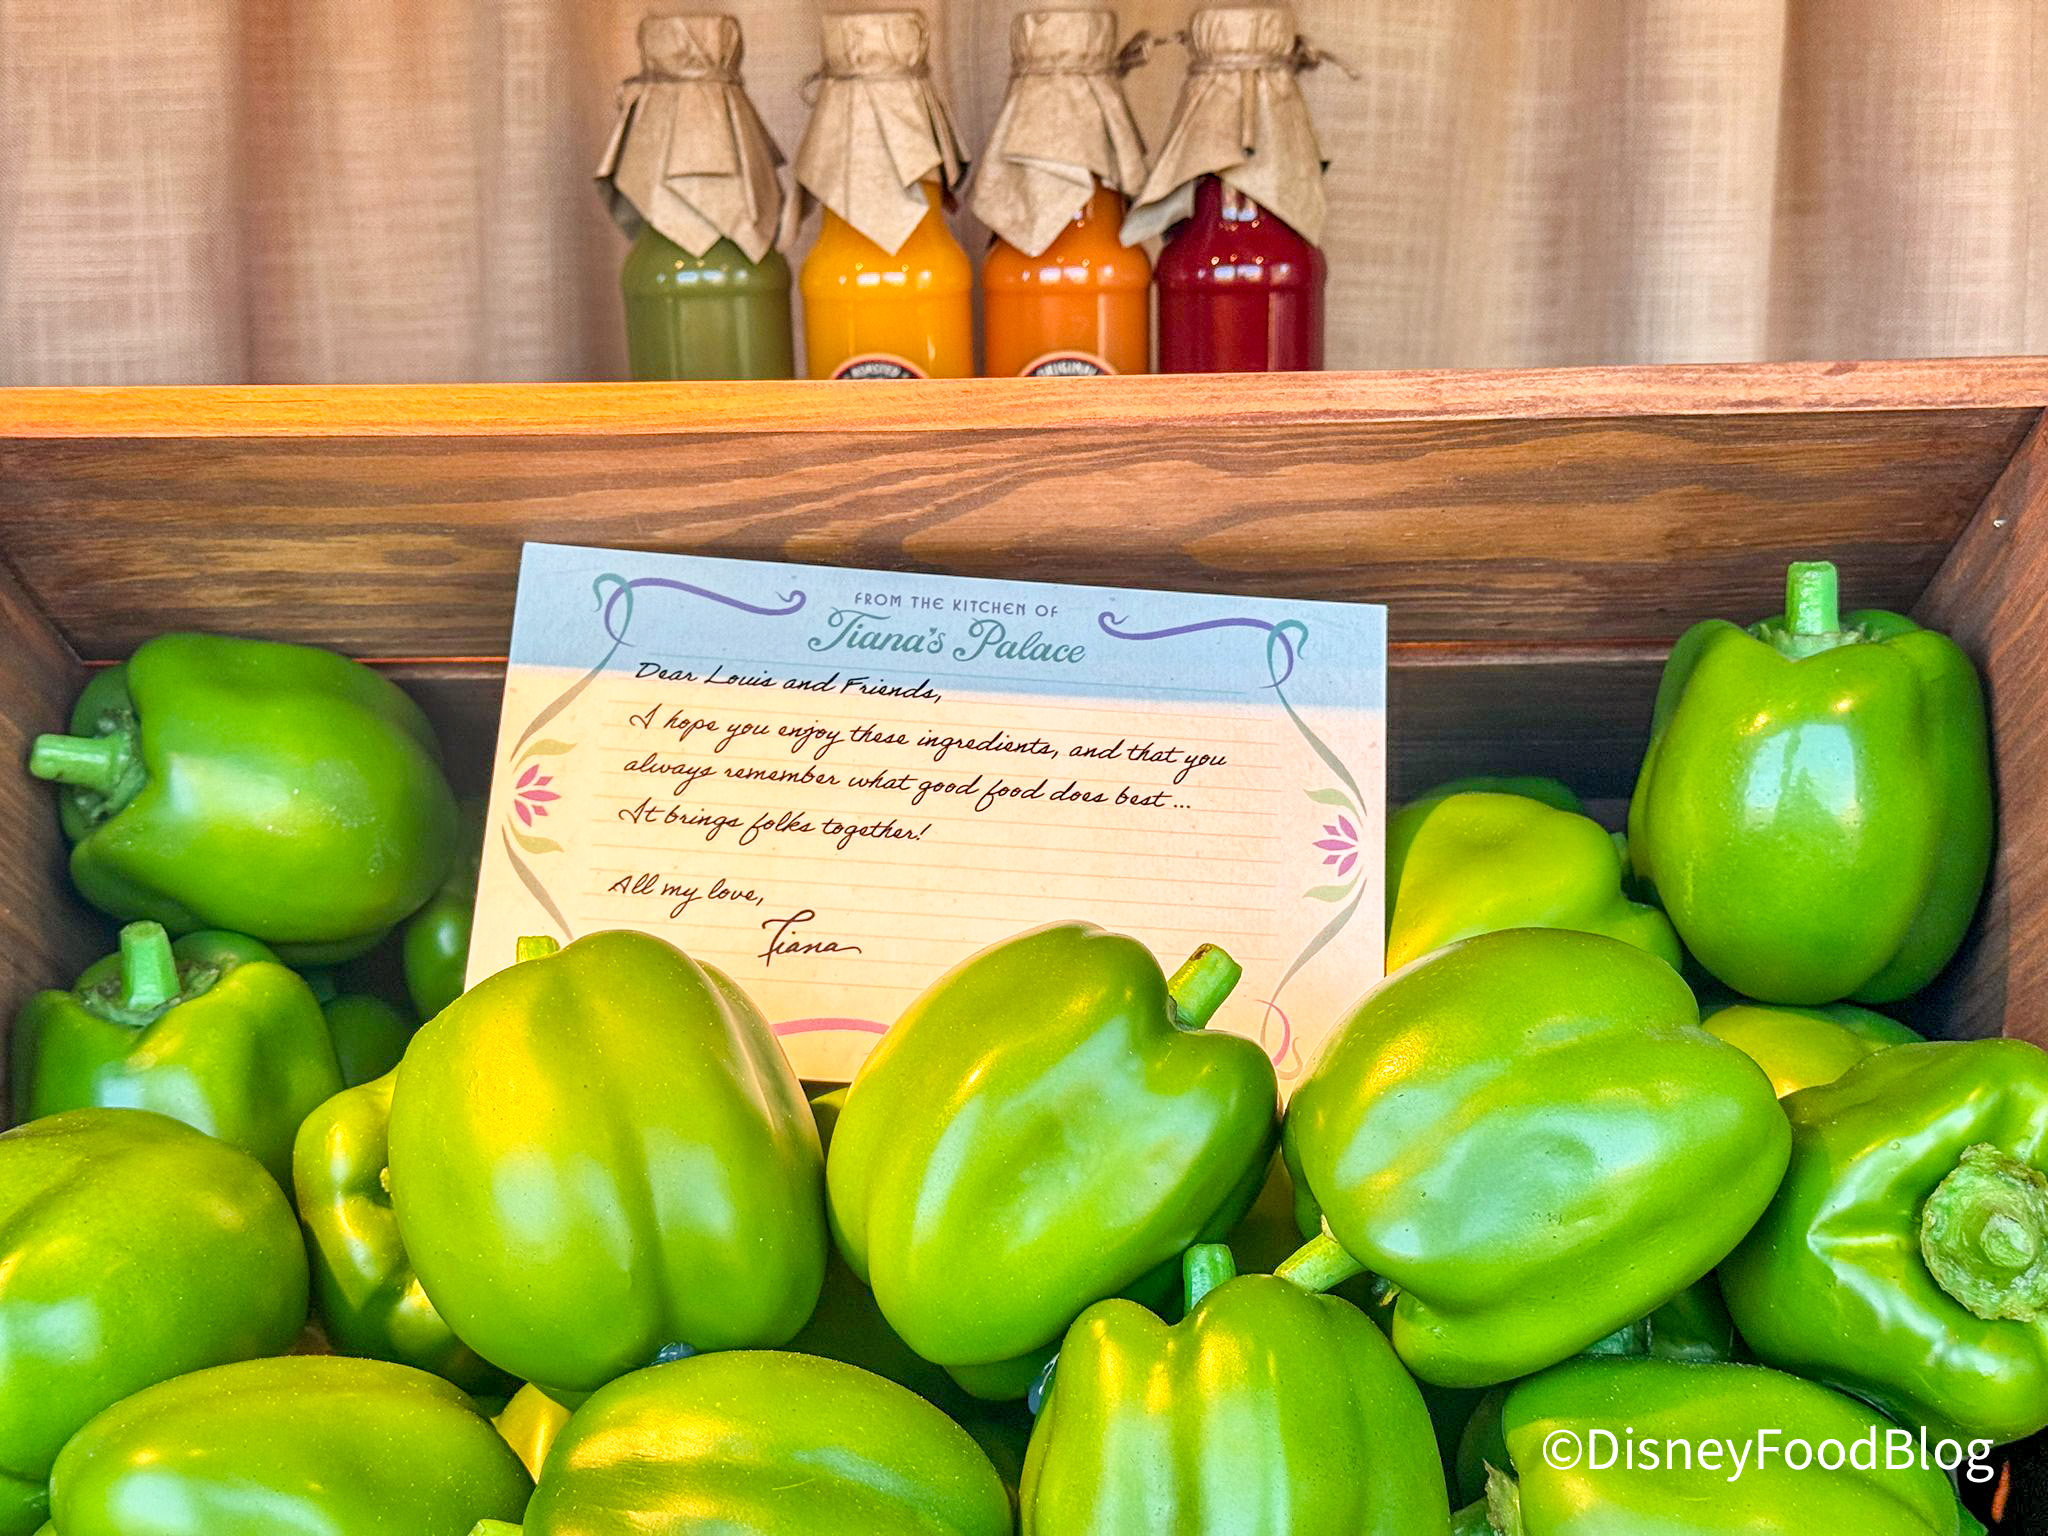 ORIGINAL
FROM THE KITCHEN OF
Tiana's Palace
Dear Louis and Friends,
I hope you enjoy these ingredients, and that you
always remember what good food does best ...
It brings folks together!
All my love,
Tiana
©DisneyFoodBlog